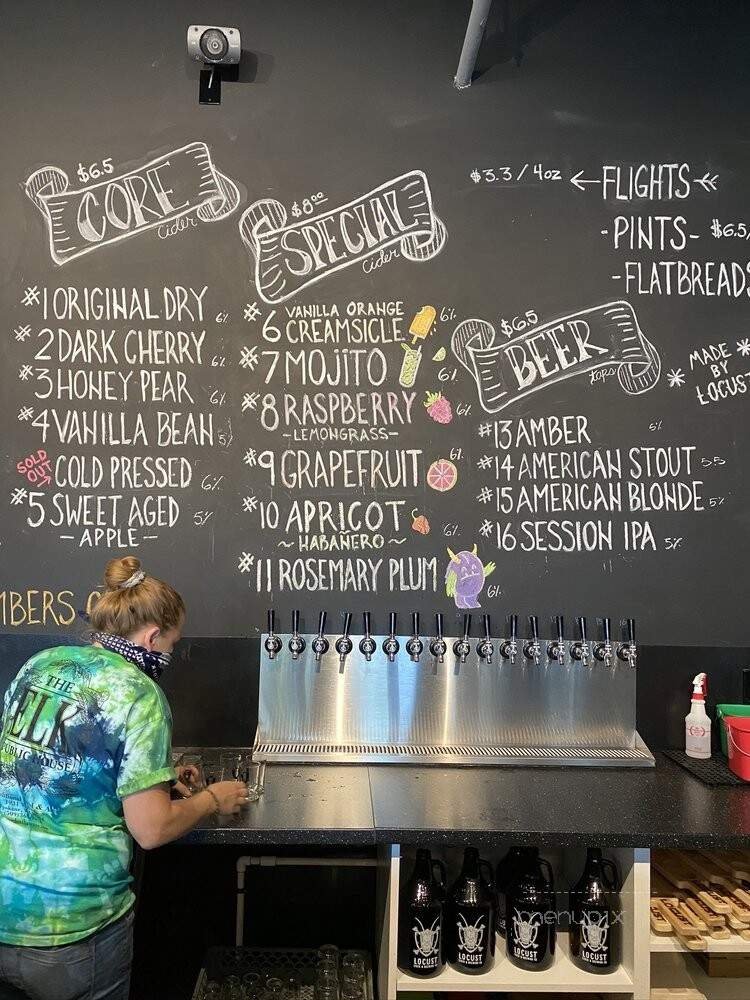 $6.5
CORE
Cider
#1 ORIGINAL DRY 6%
#2 DARK CHERRY 6%
#3 HONEY PEAR 6%
#4 VANILLA BEAN 5%
SOLD OUT COLD PRESSED 6%
#5 SWEET AGED 5%
-APPLE-
$8.00
SPECIAL
Cider
#6 VANILLA ORANGE
CREAMSICLE 6%
#7 MOJITO 6%
#8 RASPBERRY 6%
-LEMONGRASS-
#9 GRAPEFRUIT 6%
#10 APRICOT 6%
~HABAÑERO~
#11 ROSEMARY PLUM 6%
$3.3 / 4oz ← FLIGHTS
-PINTS- $6.5/
-FLATBREADS
$6.5
BEER
taps
* MADE *
BY
LOCUST
#13 AMBER 5%
#14 AMERICAN STOUT 5.5
#15 AMERICAN BLONDE 5%
#16 SESSION IPA 5%
THE
ELK
PUBLIC HOUSE
LOCUST
LOCUST
LOCUST
LOCUST
menupix